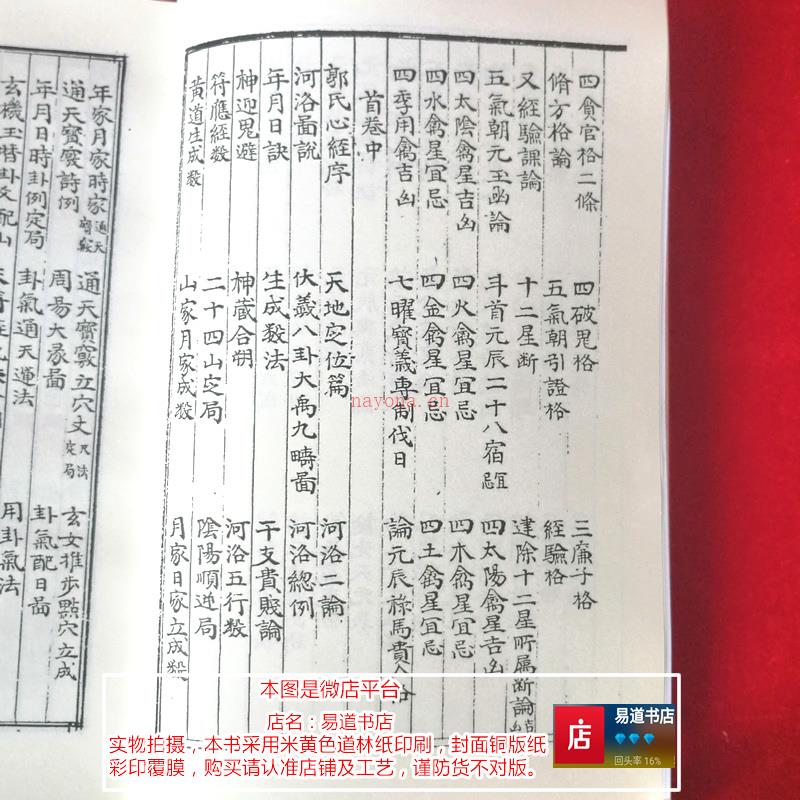 四貪官格二條 四破鬼格 三廉子格
脩方格論 五氣朝引證格 經驗格
又經驗課論 十二星斷 建除十二星所属断論
五氣朝元玉函論 斗首元辰二十八宿 四太陽禽星吉凶
四太陰禽星吉凶 四火禽星宜忌 四木禽星宜忌
四水禽星宜忌 四金禽星宜忌 四土禽星宜忌
四季用禽吉凶 七曜寳義專制伐日 論元辰祿馬貴
首卷中
郭氏心經序 天地定位篇 河洛二論
河洛啚說 伏羲八卦大禹九疇啚 河洛總例
年月日訣 生成殺法 干支貴賤論
神迎鬼避 神藏合朔 河洛五行殺
符應經殺 二十四山定局 陰陽順逆局
黃道生成殺 山家月家成殺 月家日家立成殺
年家月家時家通天竅 通天寳竅立穴丈尺法定局 玄女推步點穴立成
通天寳竅詩例 周易大彖啚 卦氣配日啚
年月日時卦例定局 卦氣通天運法 用卦氣法
nayona.cn
本图是微店平台
店名：易道书店
实物拍摄，本书采用米黄色道林纸印刷，封面铜版纸
彩印覆膜，购买请认准店铺及工艺，谨防货不对版。
店
易道书店
回头率 16%